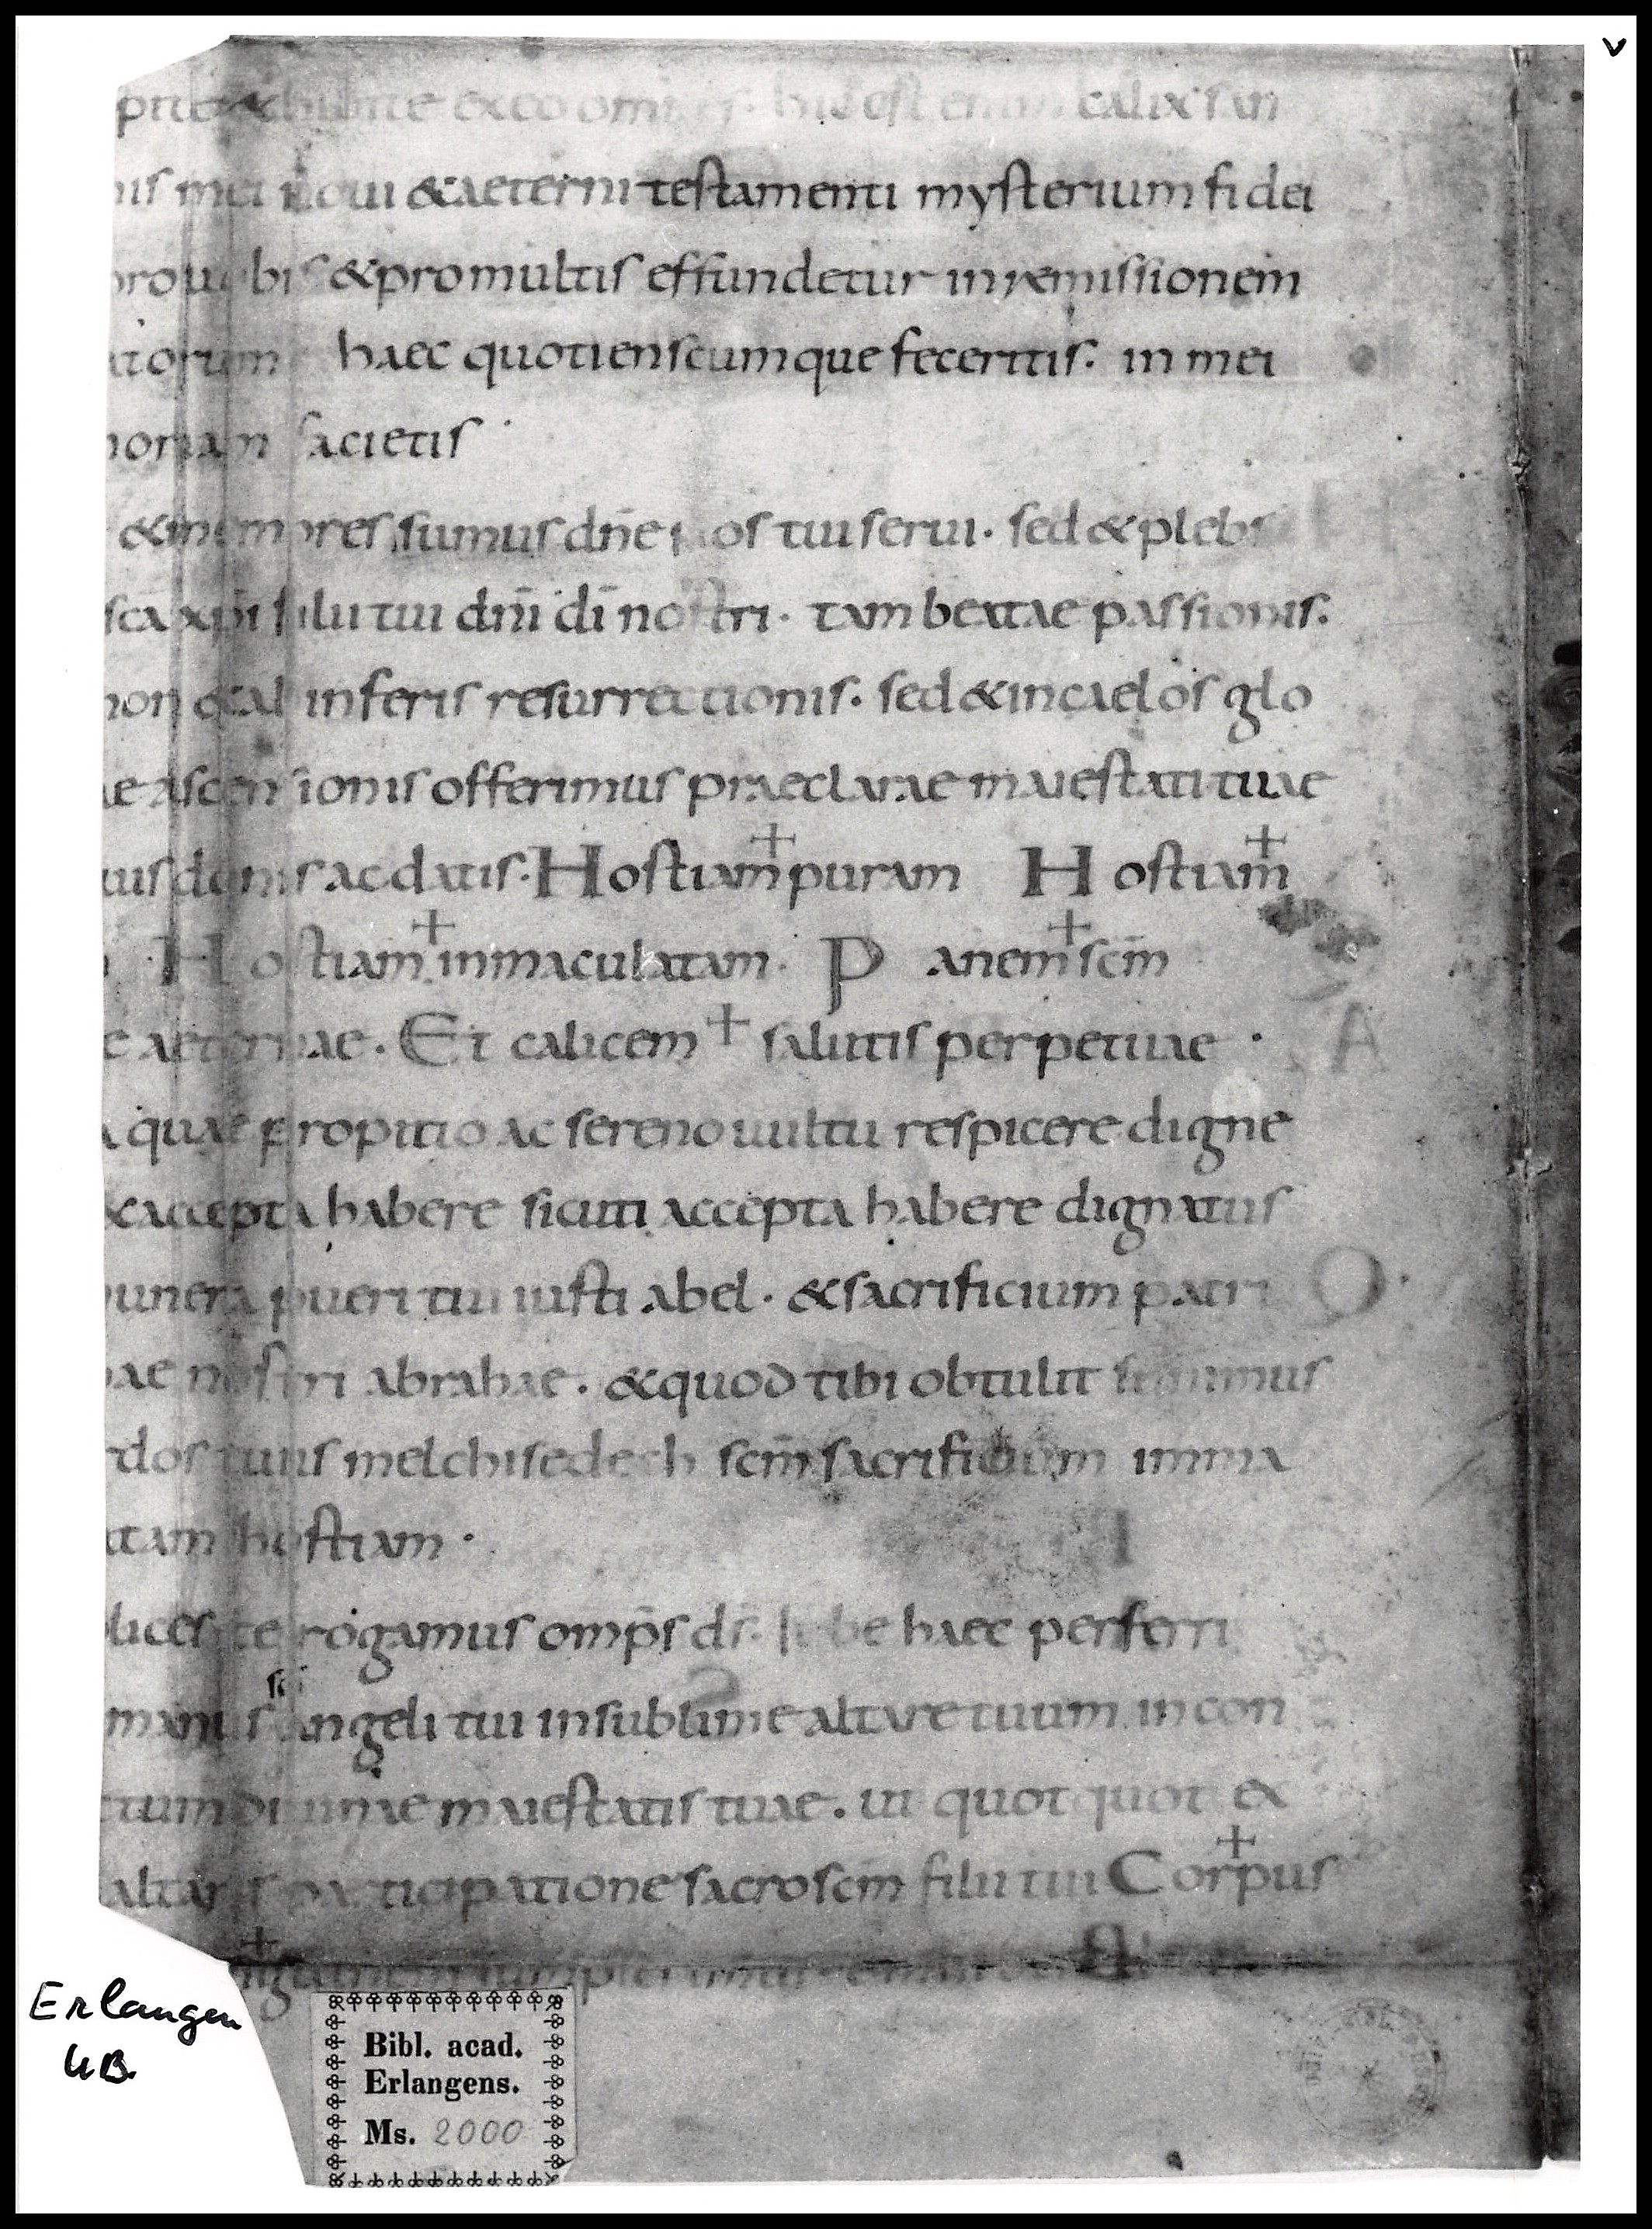 v
pite & bibite ex eo omnes. hic est enim calix san
nis mei noui & aeterni testamenti mysterium fidei
pro uobis & pro multis effundetur in remissionem
atorum haec quotienscumque feceritis. in mei
moriam facietis.
& memores sumus dn̄e nos tui serui. sed & plebs
sc̄a xp̄i filii tui dn̄i dī nostri. tam beatae passionis.
non & ab inferis resurrectionis. sed & in caelos glo
ae ascensionis offerimus praeclarae maiestati tuae
tuis donis ac datis. Hostiam + puram Hostiam +
Hostiam + immaculatam. Panem + sc̄m
e aeternae. Et calicem + salutis perpetuae.
a quae propitio ac sereno uultu respicere digne
& accepta habere sicuti accepta habere dignatus
munera pueri tui iusti abel. & sacrificium patri
hae nostri abrahae. & quod tibi obtulit summus
rdos tuus melchisedech sc̄m sacrificium imma
atam hostiam.
plices te rogamus omp̄s ds̄. Iube haec perferri
manus sc̄i angeli tui in sublime altare tuum in con
ctum diuinae maiestatis tuae. ut quotquot &
altaris participatione sacrosc̄m filii tui Corpus +
Erlangen
UB.
Bibl. acad.
Erlangens.
Ms. 2000